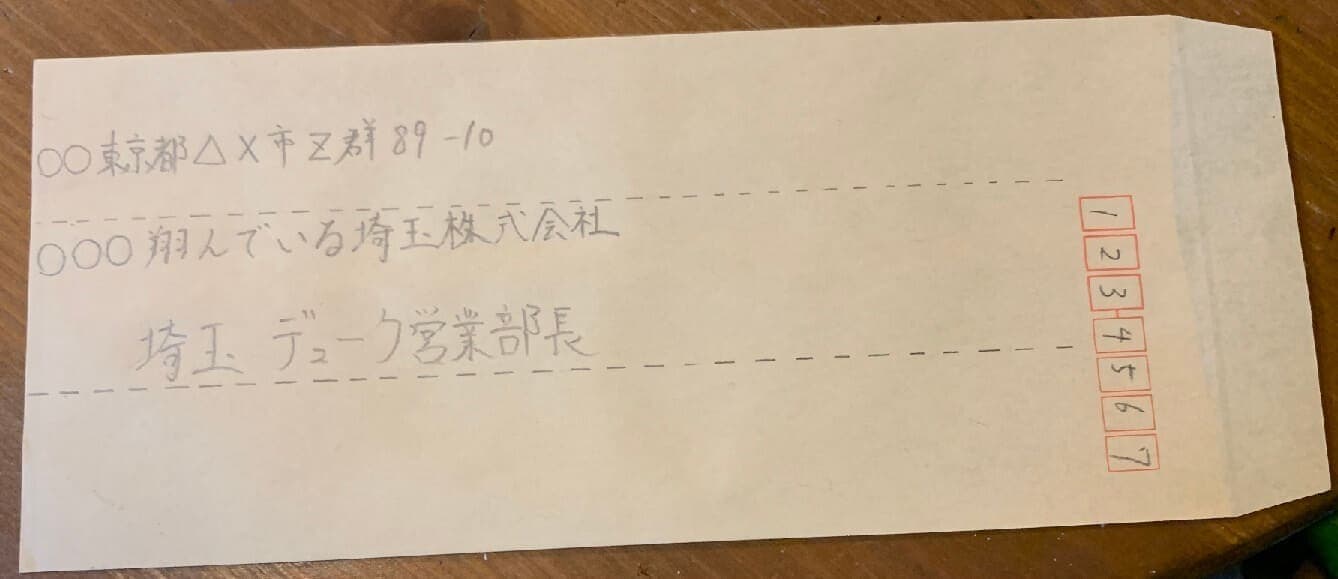 〇〇東京都△X市Z群89-10
〇〇〇翔んでいる埼玉株式会社
埼玉 デューク営業部長
1234567